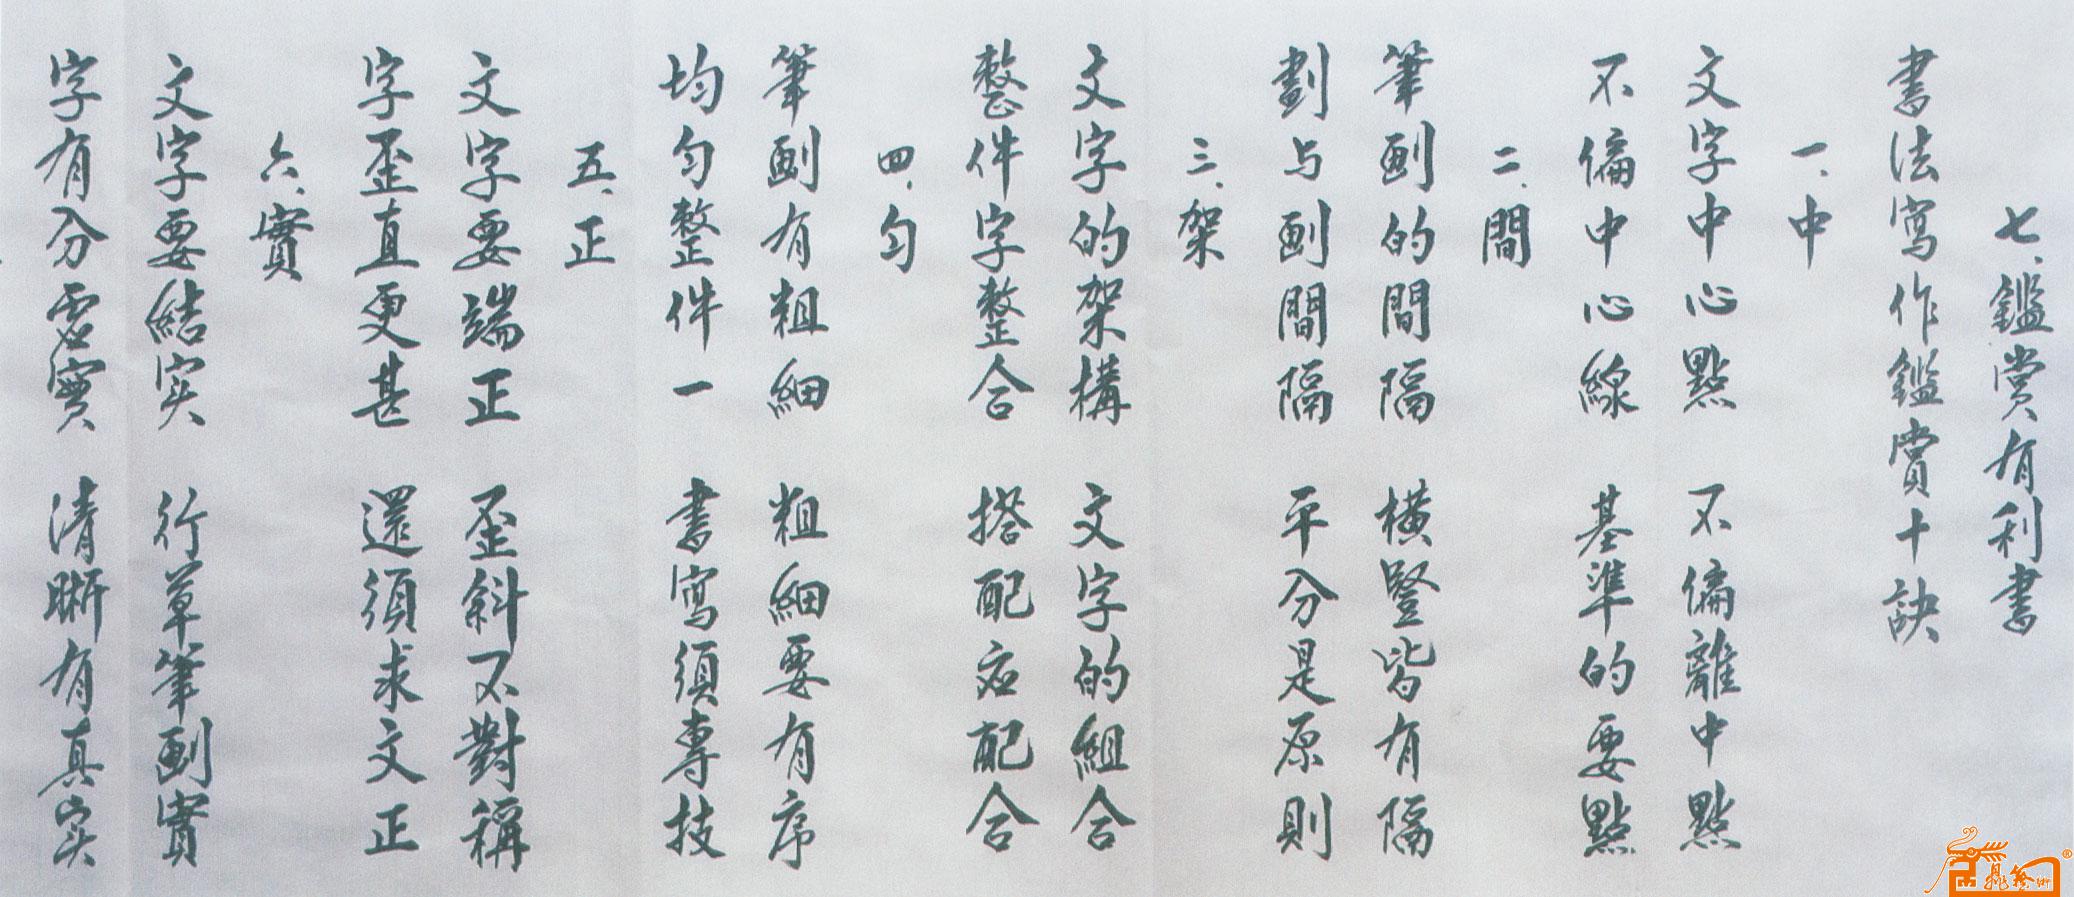 七、鑑賞有利書
書法寫作鑑賞十訣
一、中
文字中心點 不偏離中點
不偏中心線 基準的要點
二、間
筆劃的間隔 橫豎皆有隔
劃与劃間隔 平分是原則
三、架
文字的架構 文字的組合
整件字整合 搭配必配合
四、匀
筆劃有粗細 粗細要有序
均匀整件一 書寫須專技
五、正
文字要端正 歪斜不對稱
字歪直更甚 還須求文正
六、實
文字要結实 行草筆劃實
字有分虛實 清晰有真实